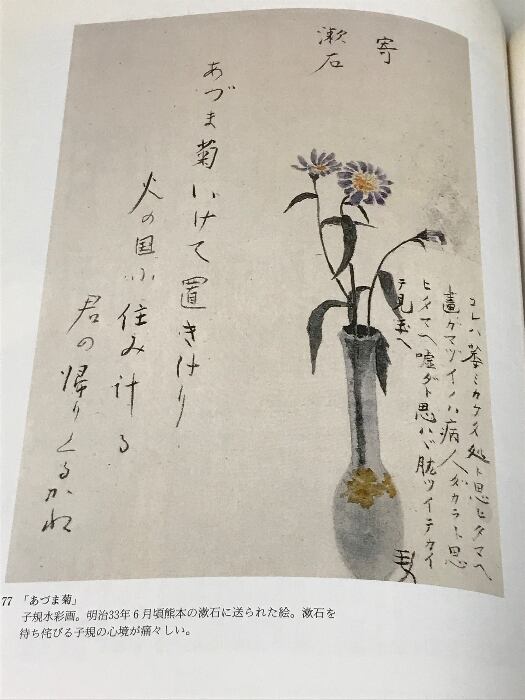 寄
漱石
コレハ萎ミカケタ処ト思ヒタマヘ
畫ガマヅイノハ病人ダカラト思
ヒタマヘ嘘ダト思ハバ肱ツイテカイ
テ見玉ヘ
あづま菊いけて置きけり
火の国に住み計る
君の帰りくるかね
77 「あづま菊」
子規水彩画。明治33年6月頃熊本の漱石に送られた絵。漱石を
待ち侘びる子規の心境が痛々しい。